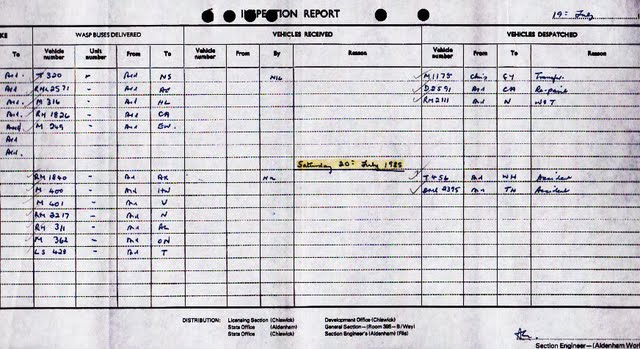 INSPECTION REPORT 19th July
KE WASP BUSES DELIVERED VEHICLES RECEIVED VEHICLES DESPATCHED
To Vehicle number Unit number From To Vehicle number From By Reason Vehicle number From To Reason
Ald. T 320 Ald NS NIL M1175 Chis GY Transfer
Ald. RML2571 - Ald AR D2591 Ald CA Repaint
Ald. M 316 - Ald HL RM2111 Ald N
Ald. RM 1826 - Ald CA
M 249 - Ald BW.
Ald
Ald.
Saturday 20th July 1985
RM 1840 - Ald AR T456 Ald WH Accident
M 400 - Ald HW 2395 Ald TH Accident
M 401 - Ald V
RM 2217 - Ald N
RM 311 - Ald AL
M 362 - Ald ON
LS 428 - Ald T
DISTRIBUTION: Licensing Section (Chiswick) Development Office (Chiswick)
Stats Office (Aldenham) General Section—(Room 395 - B/Way)
Stats Office (Chiswick) Section Engineer's (Aldenham) (File)
Section Engineer—(Aldenham Wor